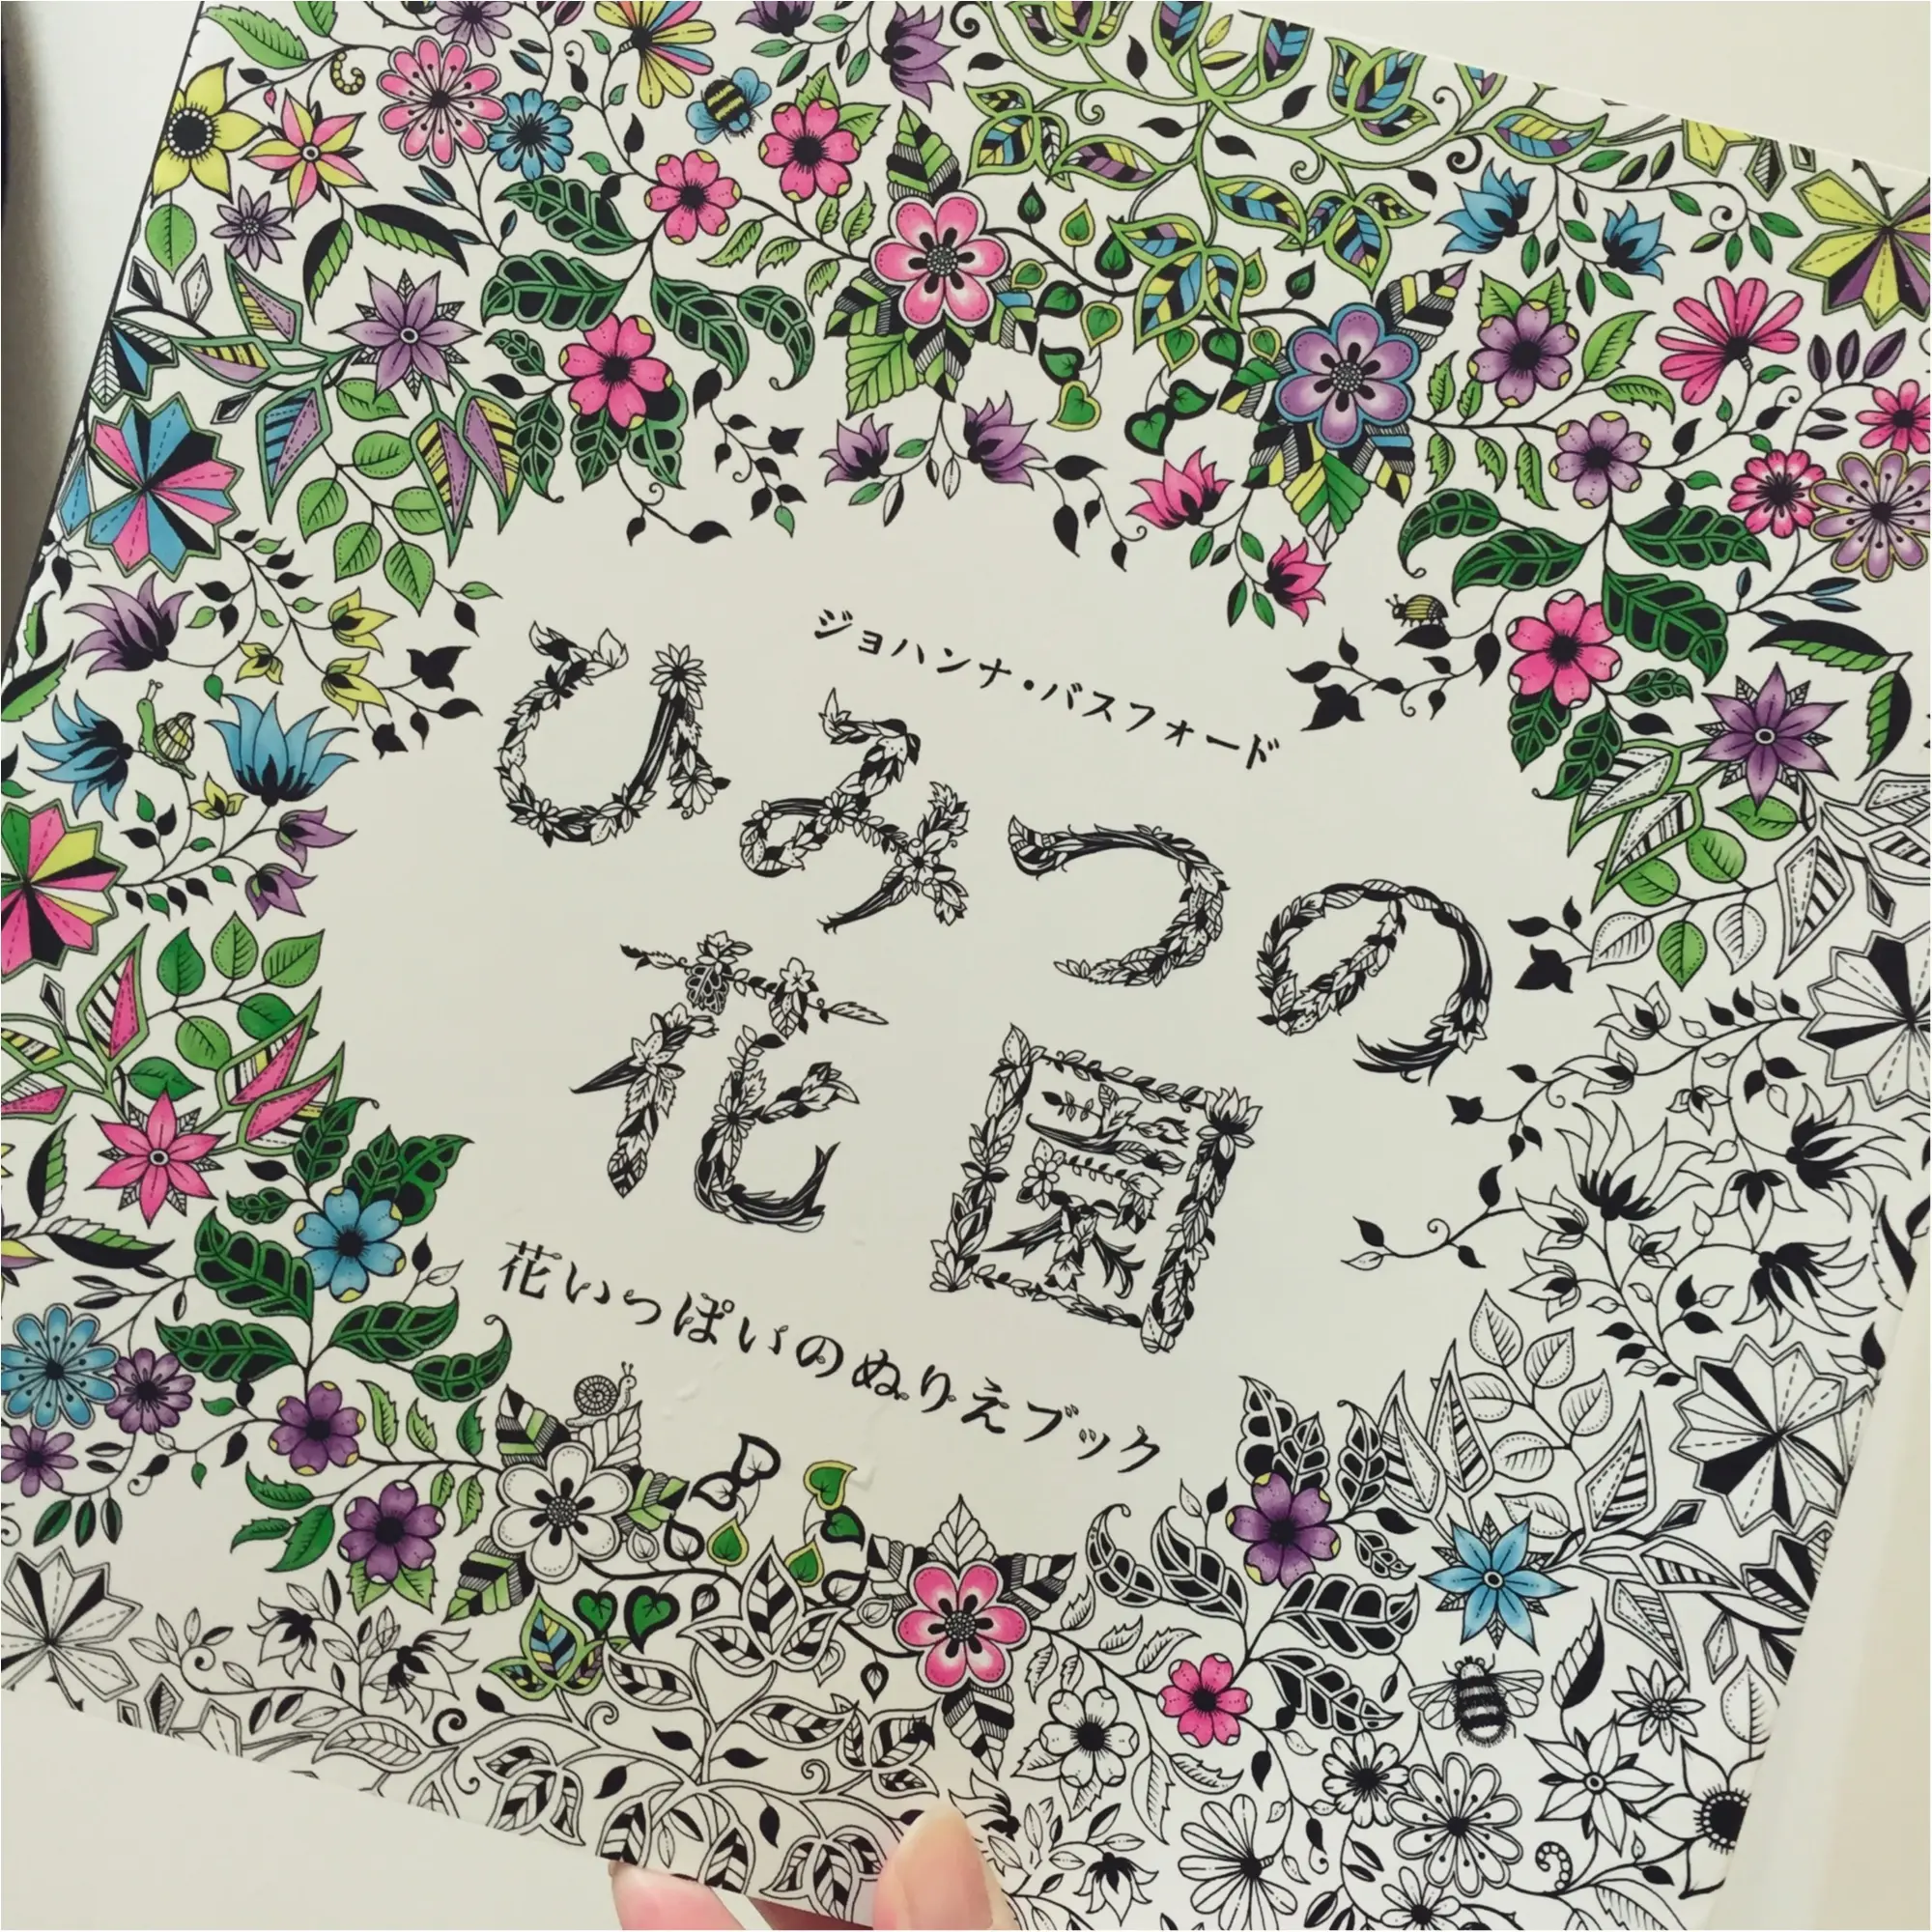 ジョハンナ・バスフォード
ひみつの
花園
花いっぱいのぬりえブック